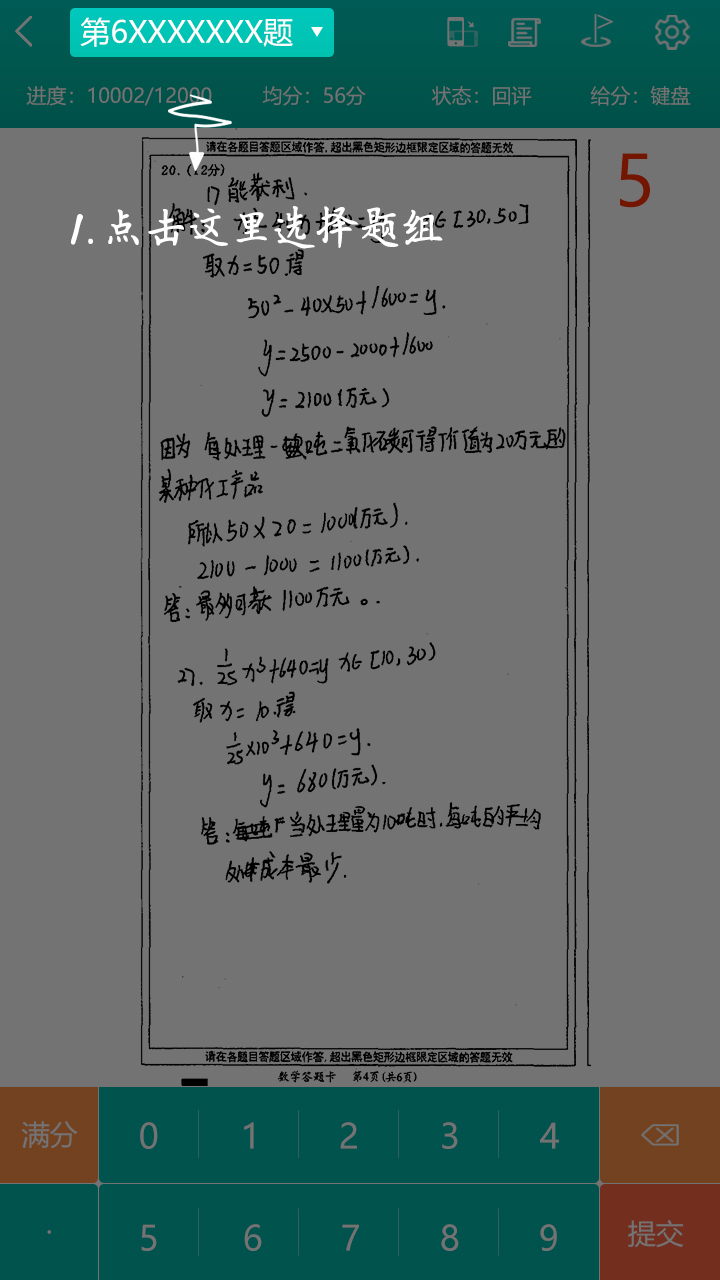 第6XXXXXXX题
进度：10002/12000 均分：56分 状态：回评 给分：键盘
请在各题目答题区域作答，超出黑色矩形边框限定区域的答题无效
5
20.（12分）
1)能获利.
1.点击这里选择题组
∈[30,50]
取x=50得
50²-40×50+1600=y.
y=2500-2000+1600
y=2100(万元)
因为 每处理一吨二氧化碳可得价值为20万元的
某种化工产品
所以50×20=1000(万元).
2100-1000=1100(万元).
答:最多可获1100万元。.
2). 1/25 x³+640=y x∈[10,30)
取x=10.得
1/25×10³+640=y.
y=680(万元).
答: 当处理量为10吨时,每吨的平均
成本最少.
请在各题目答题区域作答，超出黑色矩形边框限定区域的答题无效
数学答题卡 第4页(共6页)
满分 0 1 2 3 4
· 5 6 7 8 9 提交